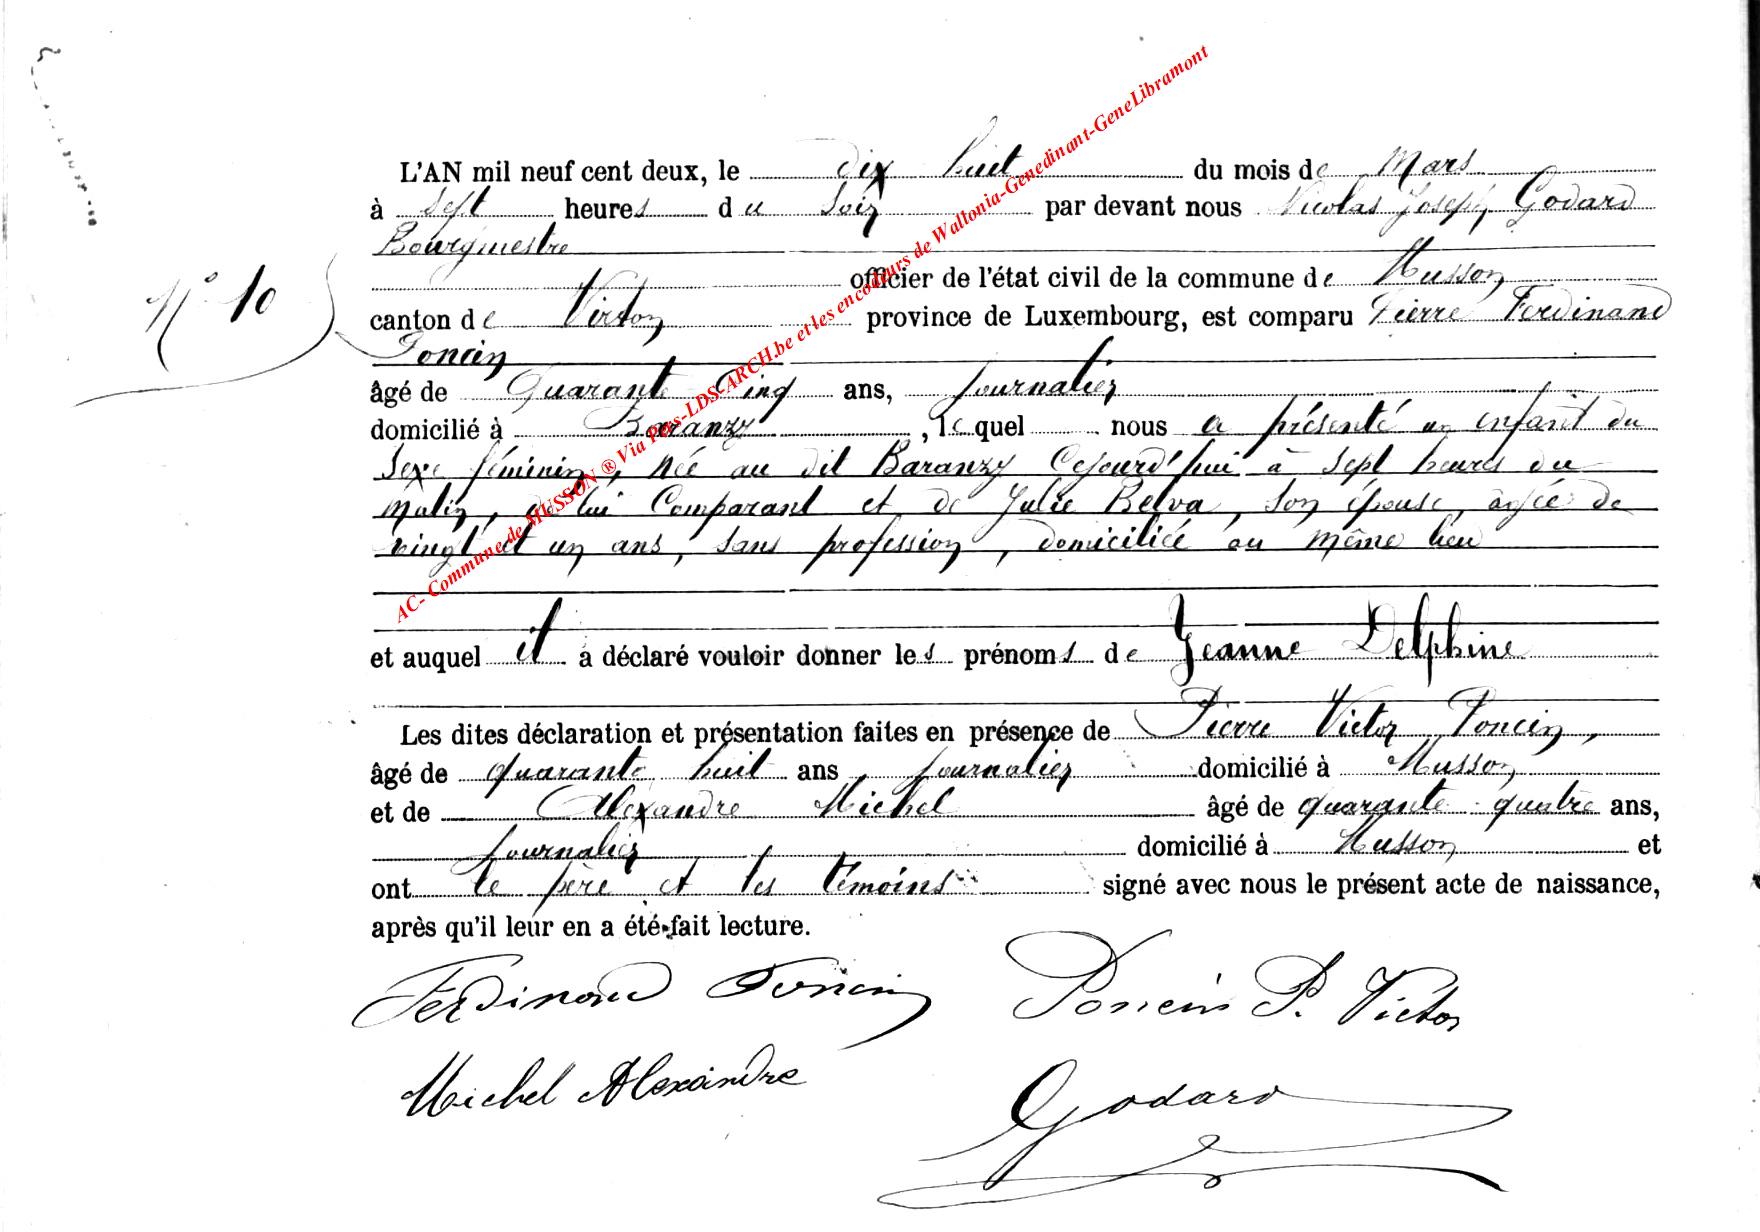 L'AN mil neuf cent deux, le dix huit du mois de Mars
à sept heures du soir par devant nous Nicolas Joseph Godard
Bourgmestre
officier de l'état civil de la commune de Musson
N° 10
canton de Virton province de Luxembourg, est comparu Pierre Ferdinand
Poncin
âgé de Quarante Cinq ans, journalier
domicilié à Baranzy, lequel nous a présenté un enfant du
sexe féminin, née au dit Baranzy Cejourd'hui à sept heures du
Matin, de lui Comparant et de Julie Belva, son épouse, âgée de
vingt et un ans, sans profession, domiciliée au même lieu
et auquel il a déclaré vouloir donner les prénoms de Jeanne Delphine
Les dites déclaration et présentation faites en présence de Pierre Victor Poncin,
âgé de quarante huit ans, journalier domicilié à Musson
et de Alexandre Michel âgé de quarante quatre ans,
journalier domicilié à Musson et
ont le père et les témoins signé avec nous le présent acte de naissance,
après qu'il leur en a été fait lecture.
Ferdinand Poncin Poncin P. Victor
Michel Alexandre
Godard
AC- Commune de MUSSON ® Via Pers-LDS-ARCH.be et les encodeurs de Wallonia-Genedinant-GeneLibramont